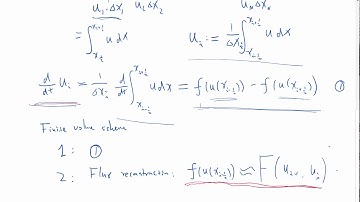 u₁·Δx₁ u₂Δx₂ uₙΔxₙ
= ∫_{x_½}^{x_{1½}} u dx uᵢ := 1/Δxᵢ ∫_{x_{i-½}}^{x_{i+½}} u dx
d/dt uᵢ = 1/Δxᵢ d/dt ∫_{x_{i-½}}^{x_{i+½}} u dx = f(u(x_{i-½})) - f(u(x_{i+½})) ①
Finite volume scheme
1: ①
2: Flux reconstruction: f(u(x_{i-½})) ≈ F(u_{i-1}, uᵢ).